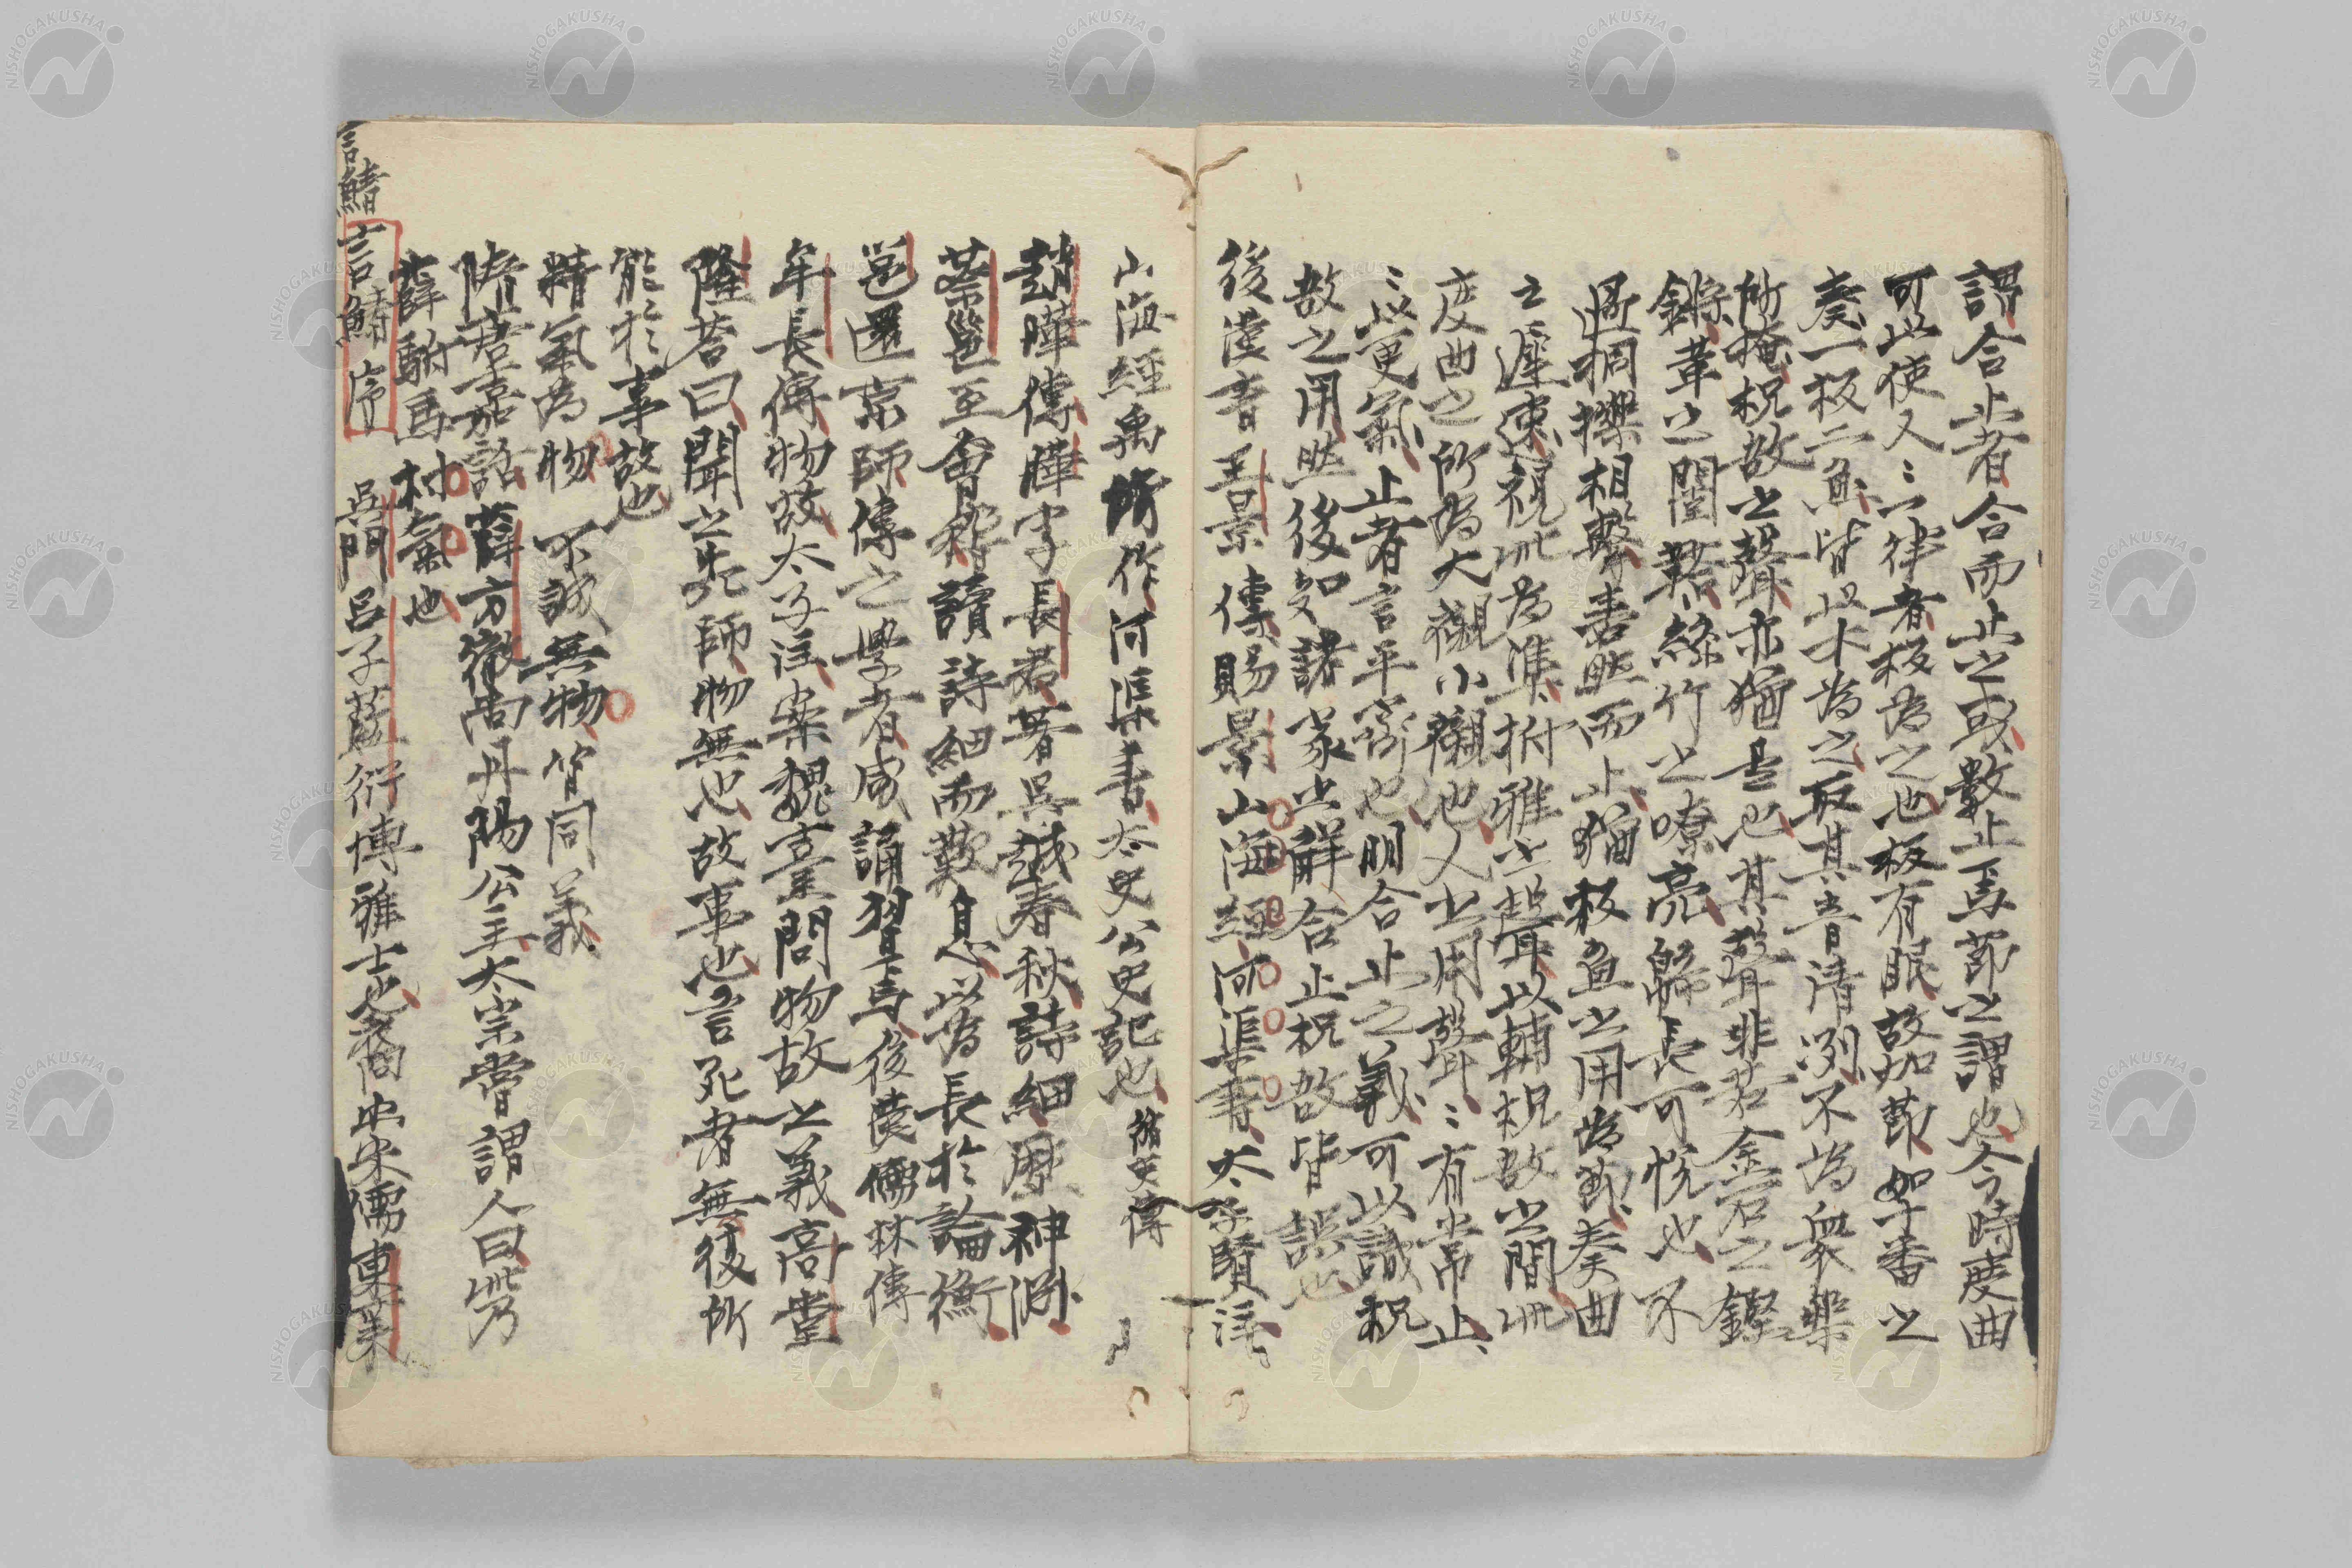 謂合止者合而止之或數止焉節之謂也今時度曲
可以使人〻一律者板為之也板有眼故加節如字番之
奏一板二魚皆以木為之取其音清冽不為衆樂
所掩柷敔之聲亦猶是也其聲非若金石之鏗
鏘革之閽鞳絲竹之嘹亮歸長可悅也不
過椆擽相擊𦘕然而止猶板魚之用為郢奏曲
之遲速視此為準拊雅之聲以輔柷敔之間此
度曲之所為大襯小襯也人之用聲〻有常止
〻以更氣止者言平齊也明合止之義可以識柷
敔之用然後知諸家之解合止柷敔皆誤也
後漢書王景傳賜景山海經河渠書太子賢注
山海經禹所作河渠書太史公史記也 循吏傳
趙曄傳曄字長君著吳越春秋詩細歷神淵
蔡邕至會稽讀詩細而歎息以為長於論衡
邕還京師傳之學者咸誦習焉 後漢儒林傳
牟長傳物故太子注案魏臺問物故之義高堂
隆荅曰聞之先師物無也故事也言死者無復所
能於事故也
精氣為物 不誠無物 皆同義
隋唐嘉話薛方徹尚丹陽公主太宗嘗謂人曰
薛駙馬村氣也
言鯖
言鯖序 吳門呂子藍衍博雅士也裔出宋儒東萊
NISHOGAKUSHA